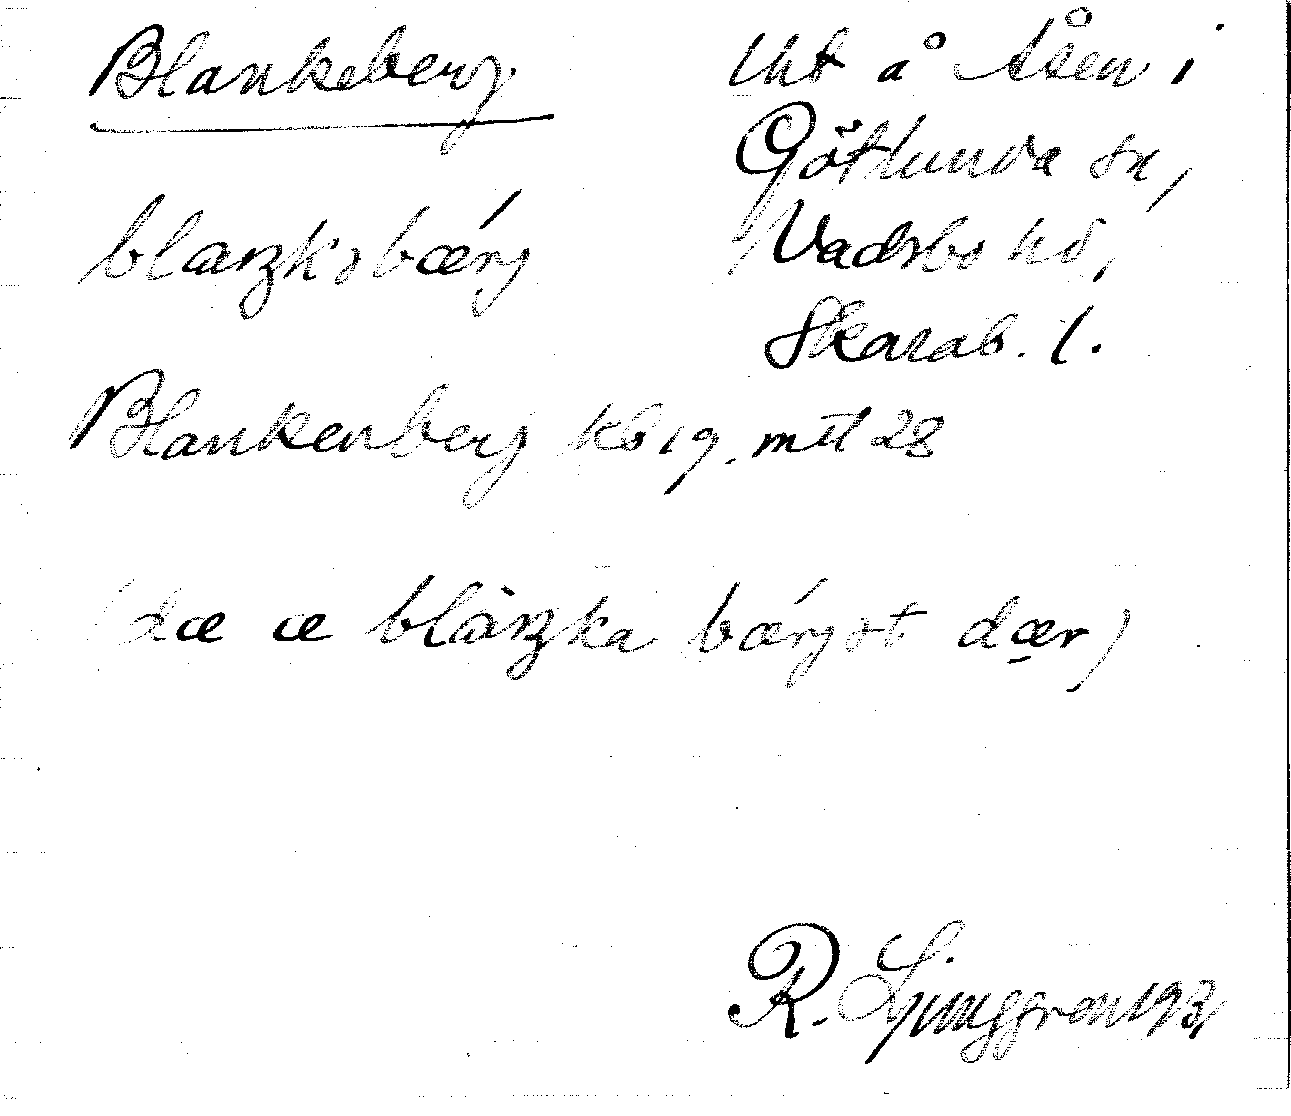 Blankeberg
Uht å Åsen i
Götlunda sn,
Vadsbo hd,
Skarab. l.
blaŋkəbærj
Blankenberg kb 19. mtl 23
(dæ æ blàŋka bærjət dær)
R. Ljunggren 1931